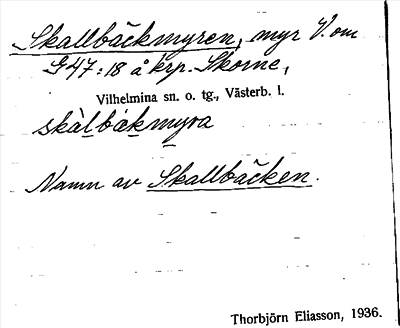 Skallbäckmyren, myr V. om
G47:18 å krp. Skorne,
Vilhelmina sn. o. tg., Västerb. l.
skàlbäkmyra
Namn av Skallbäcken.
Thorbjörn Eliasson, 1936.